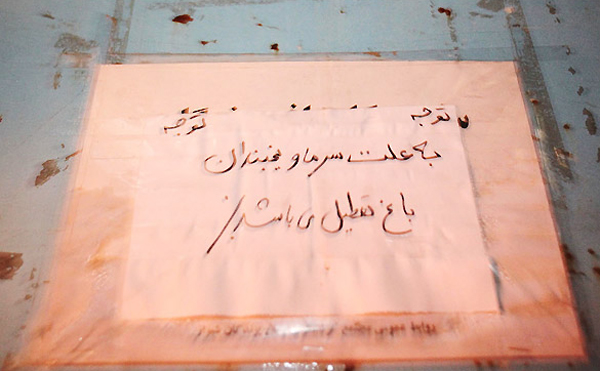 توجه توجه
به علت سرما و یخبندان
باغ تعطیل می باشد
روابط عمومی